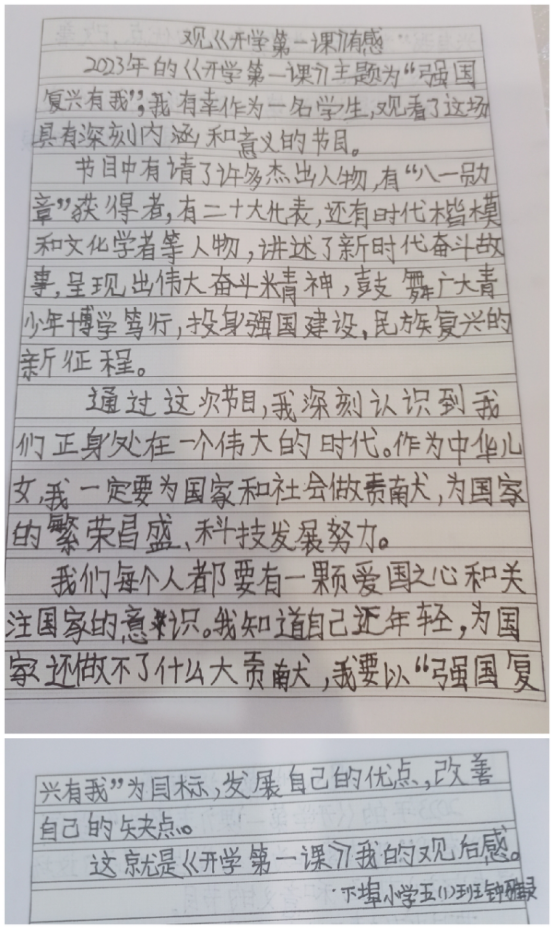 观《开学第一课》有感
2023年的《开学第一课》主题为“强国
复兴有我”,我有幸作为一名学生,观看了这场
具有深刻内涵和意义的节目。
节目中有请了许多杰出人物,有“八一勋
章”获得者,有二十大代表,还有时代楷模
和文化学者等人物,讲述了新时代奋斗故
事,呈现出伟大奋斗精神,鼓舞广大青
少年博学笃行,投身强国建设,民族复兴的
新征程。
通过这次节目,我深刻认识到我
们正身处在一个伟大的时代。作为中华儿
女,我一定要为国家和社会做贡献,为国家
的繁荣昌盛、科技发展努力。
我们每个人都要有一颗爱国之心和关
注国家的意识。我知道自己还年轻,为国
家还做不了什么大贡献,我要以“强国复
兴有我”为目标,发展自己的优点,改善
自己的缺点。
这就是《开学第一课》我的观后感。
下埠小学五(1)班钟